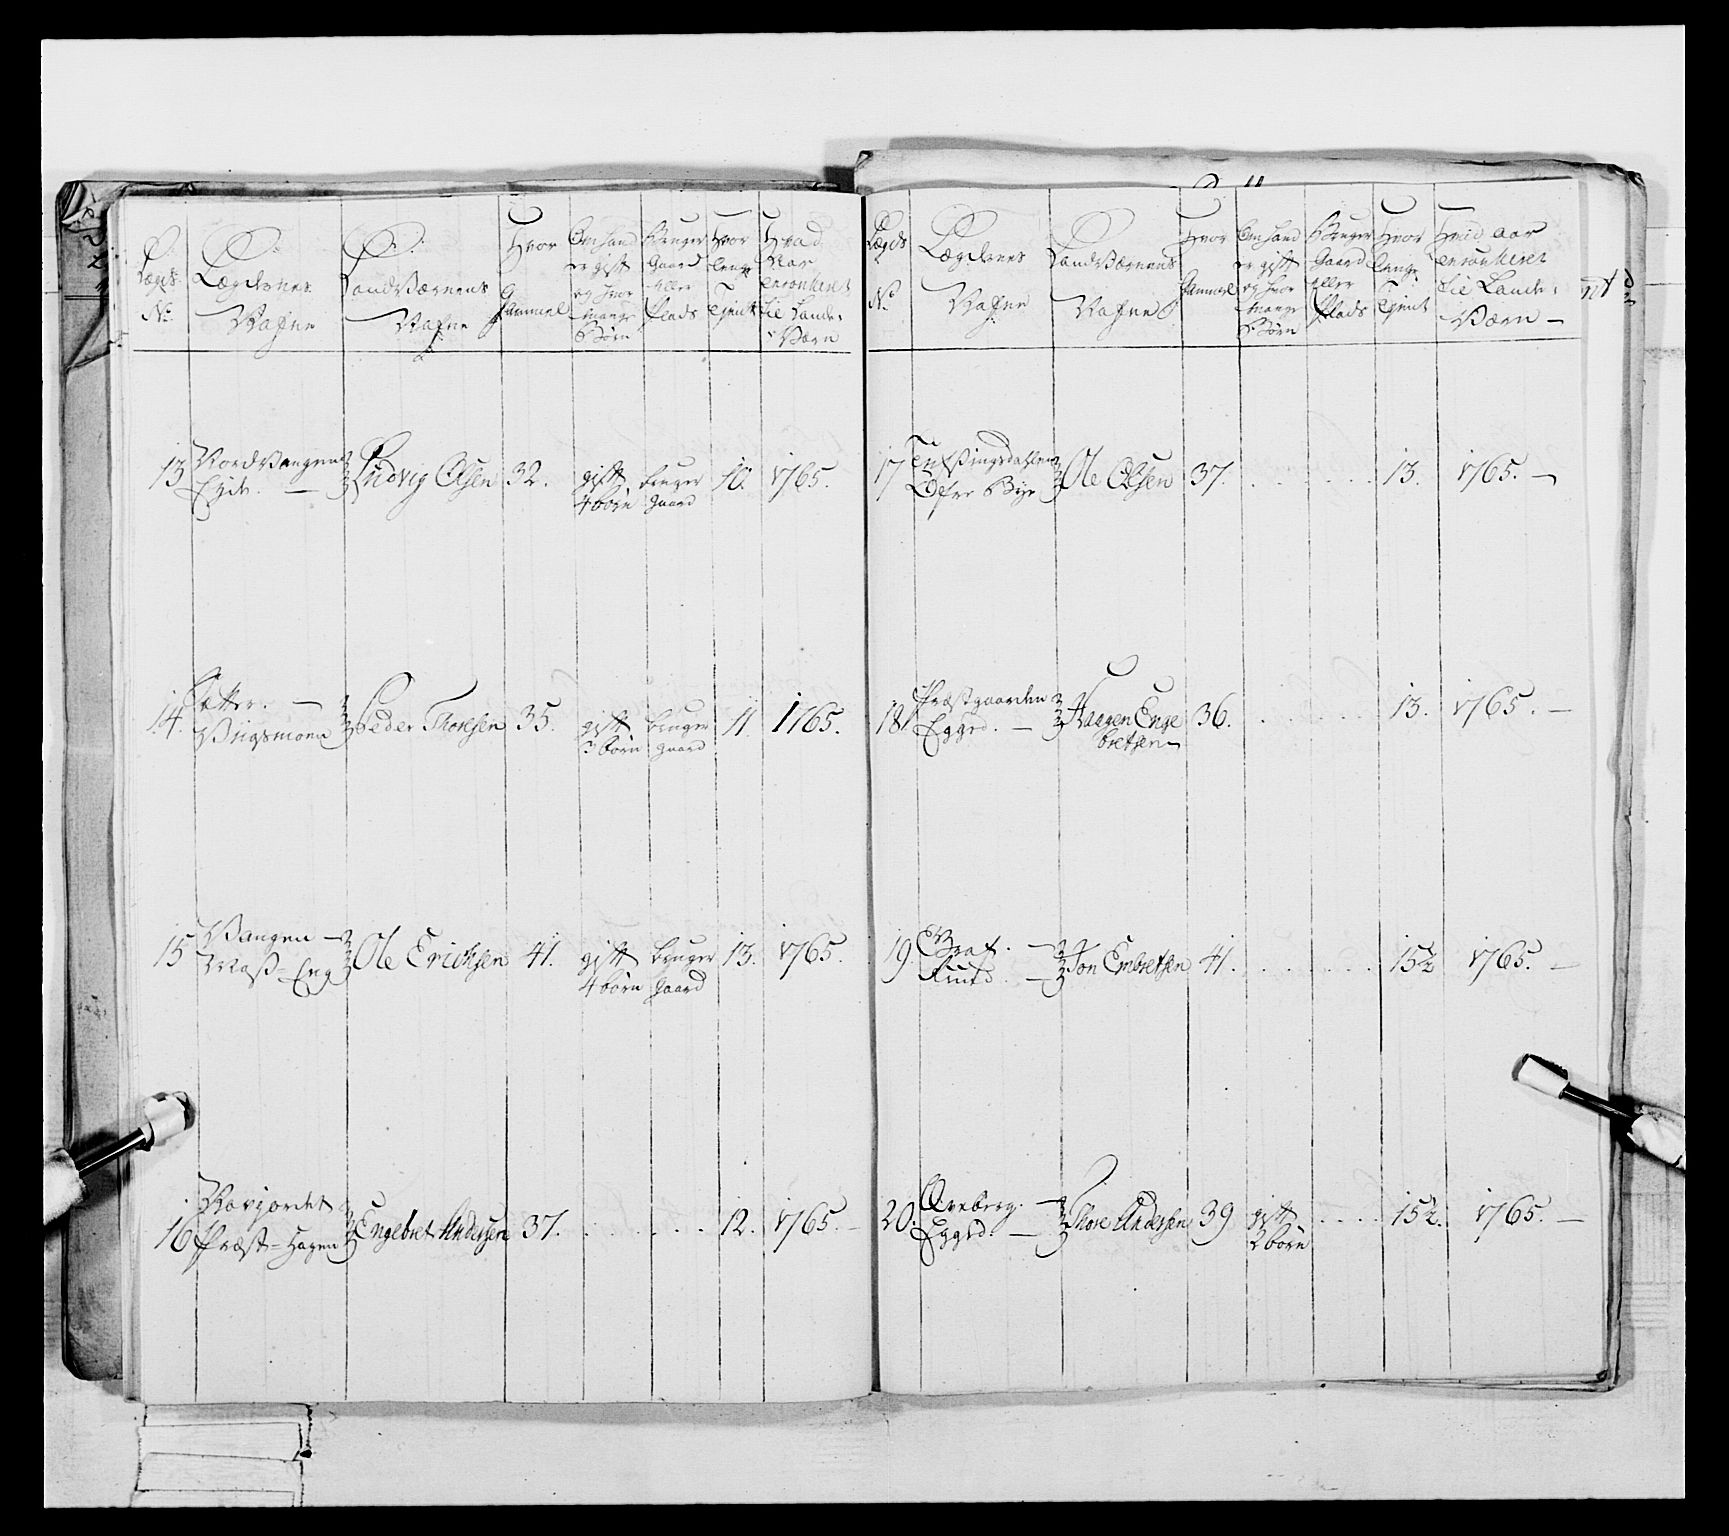 Lægds No.
Lægdernes Nafne
LandWærnens Nafne
Hvor Gammel
Om hand er gift og hvor mange Børn
Bruger Gaard eller Plads
Hvor lenge Tjent
Hvad Aar enroulleret til Lande-Værn
13 NordVangen Eide. — Ludvig Olsen 32. gift 4 børn bruger gaard 10. 1765.
14. Sætter. — Viigsmoen Peder Thoresen 35. gift 3 børn bruger gaard 11. 1765.
15 Vangen — Moss=Eng Ole Erichsen 41. gift 4 børn bruger gaard 13. 1765.
16 Præst=Hagen Engebret Andersen 37. . . . . . . 12. 1765. —
Lægds No.
Lægdernes Nafne
LandWærnens Nafne
Hvor Gammel
Om hand er gift og hvor mange Børn
Bruger Gaard eller Plads
Hvor lenge Tjent
Hvad aar enroulleret til Lande-Værn —
17 Øfre Bye Ole Olsen 37. . . . . . . 13. 1765. —
18. Præstgaarden Egged. — Haagen Engebretsen 36. . . . . . . 13. 1765. —
19. Ruud. — Jon Embretsen 41. . . . . . . 15½ 1765. —
20. Egged. — Thore Andersen 39 gift 2 børn . . . . 15½. 1765. —